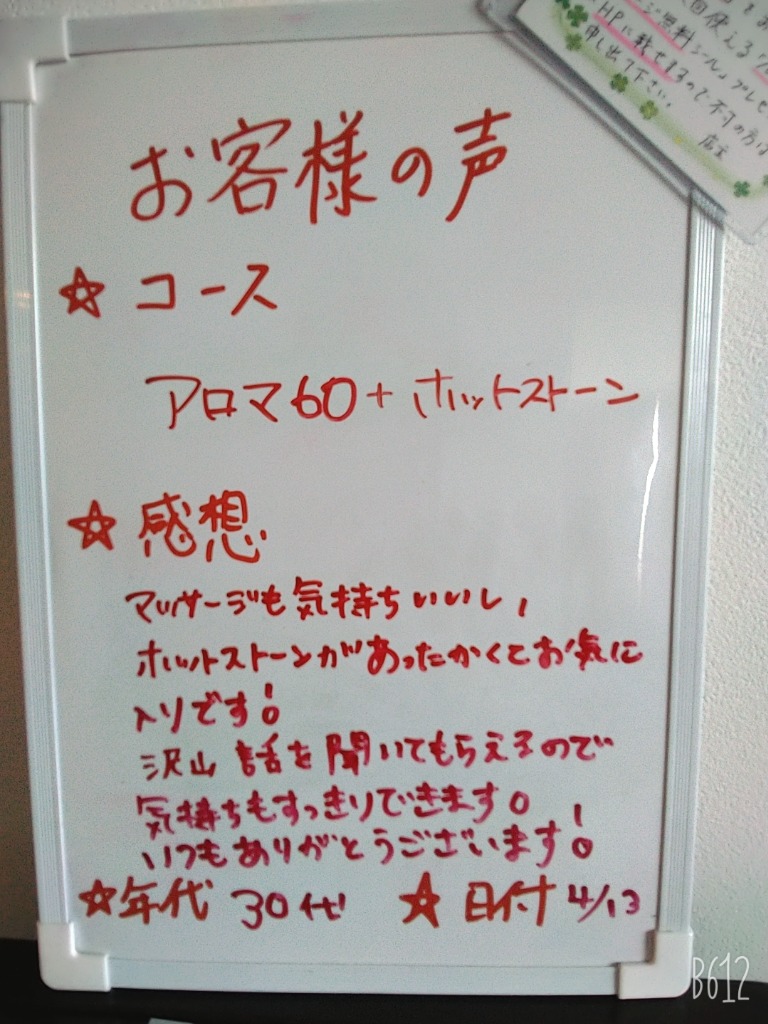 HPに載せるので不可の方は
申し出て下さい。
店主
お客様の声
☆ コース
アロマ60+ホットストーン
☆ 感想
マッサージも気持ちいいし、
ホットストーンがあったかくてお気に
入りです!
沢山話を聞いてもらえるので
気持ちもすっきりできます。
いつもありがとうございます!
☆年代 30代 ☆ 日付 4/13
B612